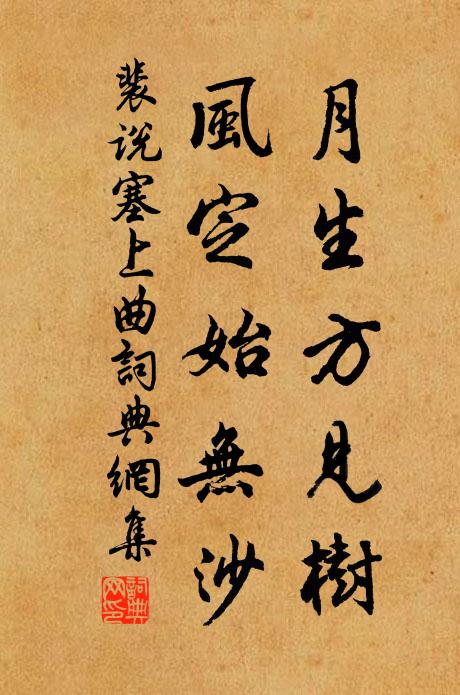 月生方見樹
風定始無沙
裴説塞上曲詞典網集
詞典
網印